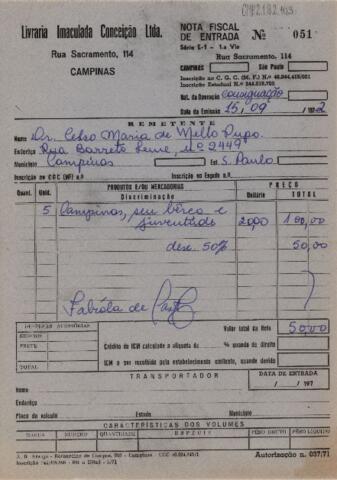 CMP2.1.8.2.453
Livraria Imaculada Conceição Ltda.
Rua Sacramento, 114
CAMPINAS
NOTA FISCAL
DE ENTRADA
Nº 051
Série E-1 - 1.a Via
Rua Sacramento, 114
CAMPINAS São Paulo
Inscrição no C. G. C. (M. F.) N.º
Inscrição Estadual N.º
Nat. da Operação Consignação
Data da Emissão 15/09/1972
REMETENTE
Nome Dr. Celso Maria de Mello Pupo.
Endereço Rua Barreto Leme, nº 2449
Município Campinas Est. S. Paulo
Inscrição no CGC (MF) n.º Inscrição no Estado n.º
Quant. Unid. PRODUTOS E/OU MERCADORIAS PREÇO
Discriminação Unitário TOTAL
5 Campinas, seu berço e juventude 20,00 100,00
desc. 50% 50,00
Fabíola de
DESPESAS ACESSÓRIAS
Valor total da Nota 50,00
SEGURO
FRETE
TOTAL
Crédito de ICM calculado a alíquota de % quando de direito
ICM a ser recolhido pelo estabelecimento emitente, quando devido
TRANSPORTADOR
DATA DE ENTRADA
/ / 197
Nome
Endereço
Placa do veículo Estado Município
CARACTERÍSTICAS DOS VOLUMES
MARCA NÚMERO QUANTIDADE ESPÉCIE PÊSO BRUTO PÊSO LÍQUIDO
Autorização n. 037/71